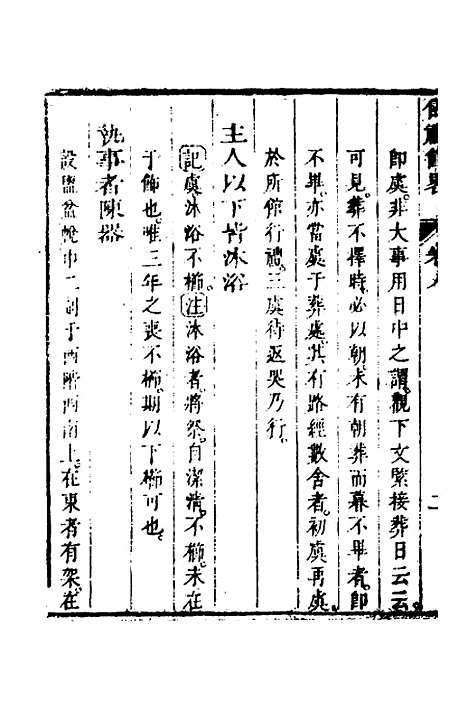 即虞。非大事用日中之謂。觀下文緊接葬日云云。
可見。葬不擇時。必以朝。未有朝葬而暮不畢者。卽
不畢。亦當虞于葬處。其有路經數舍者。初虞再虞。
於所館行禮。三虞待返哭乃行。
主人以下皆沐浴
記虞沐浴不櫛。注沐浴者。將祭。自潔清。不櫛。未在
于飾也。唯三年之喪不櫛。期以下櫛可也。
執事者陳器
設盥盆帨巾二副于西階西南上。在東者有架。在